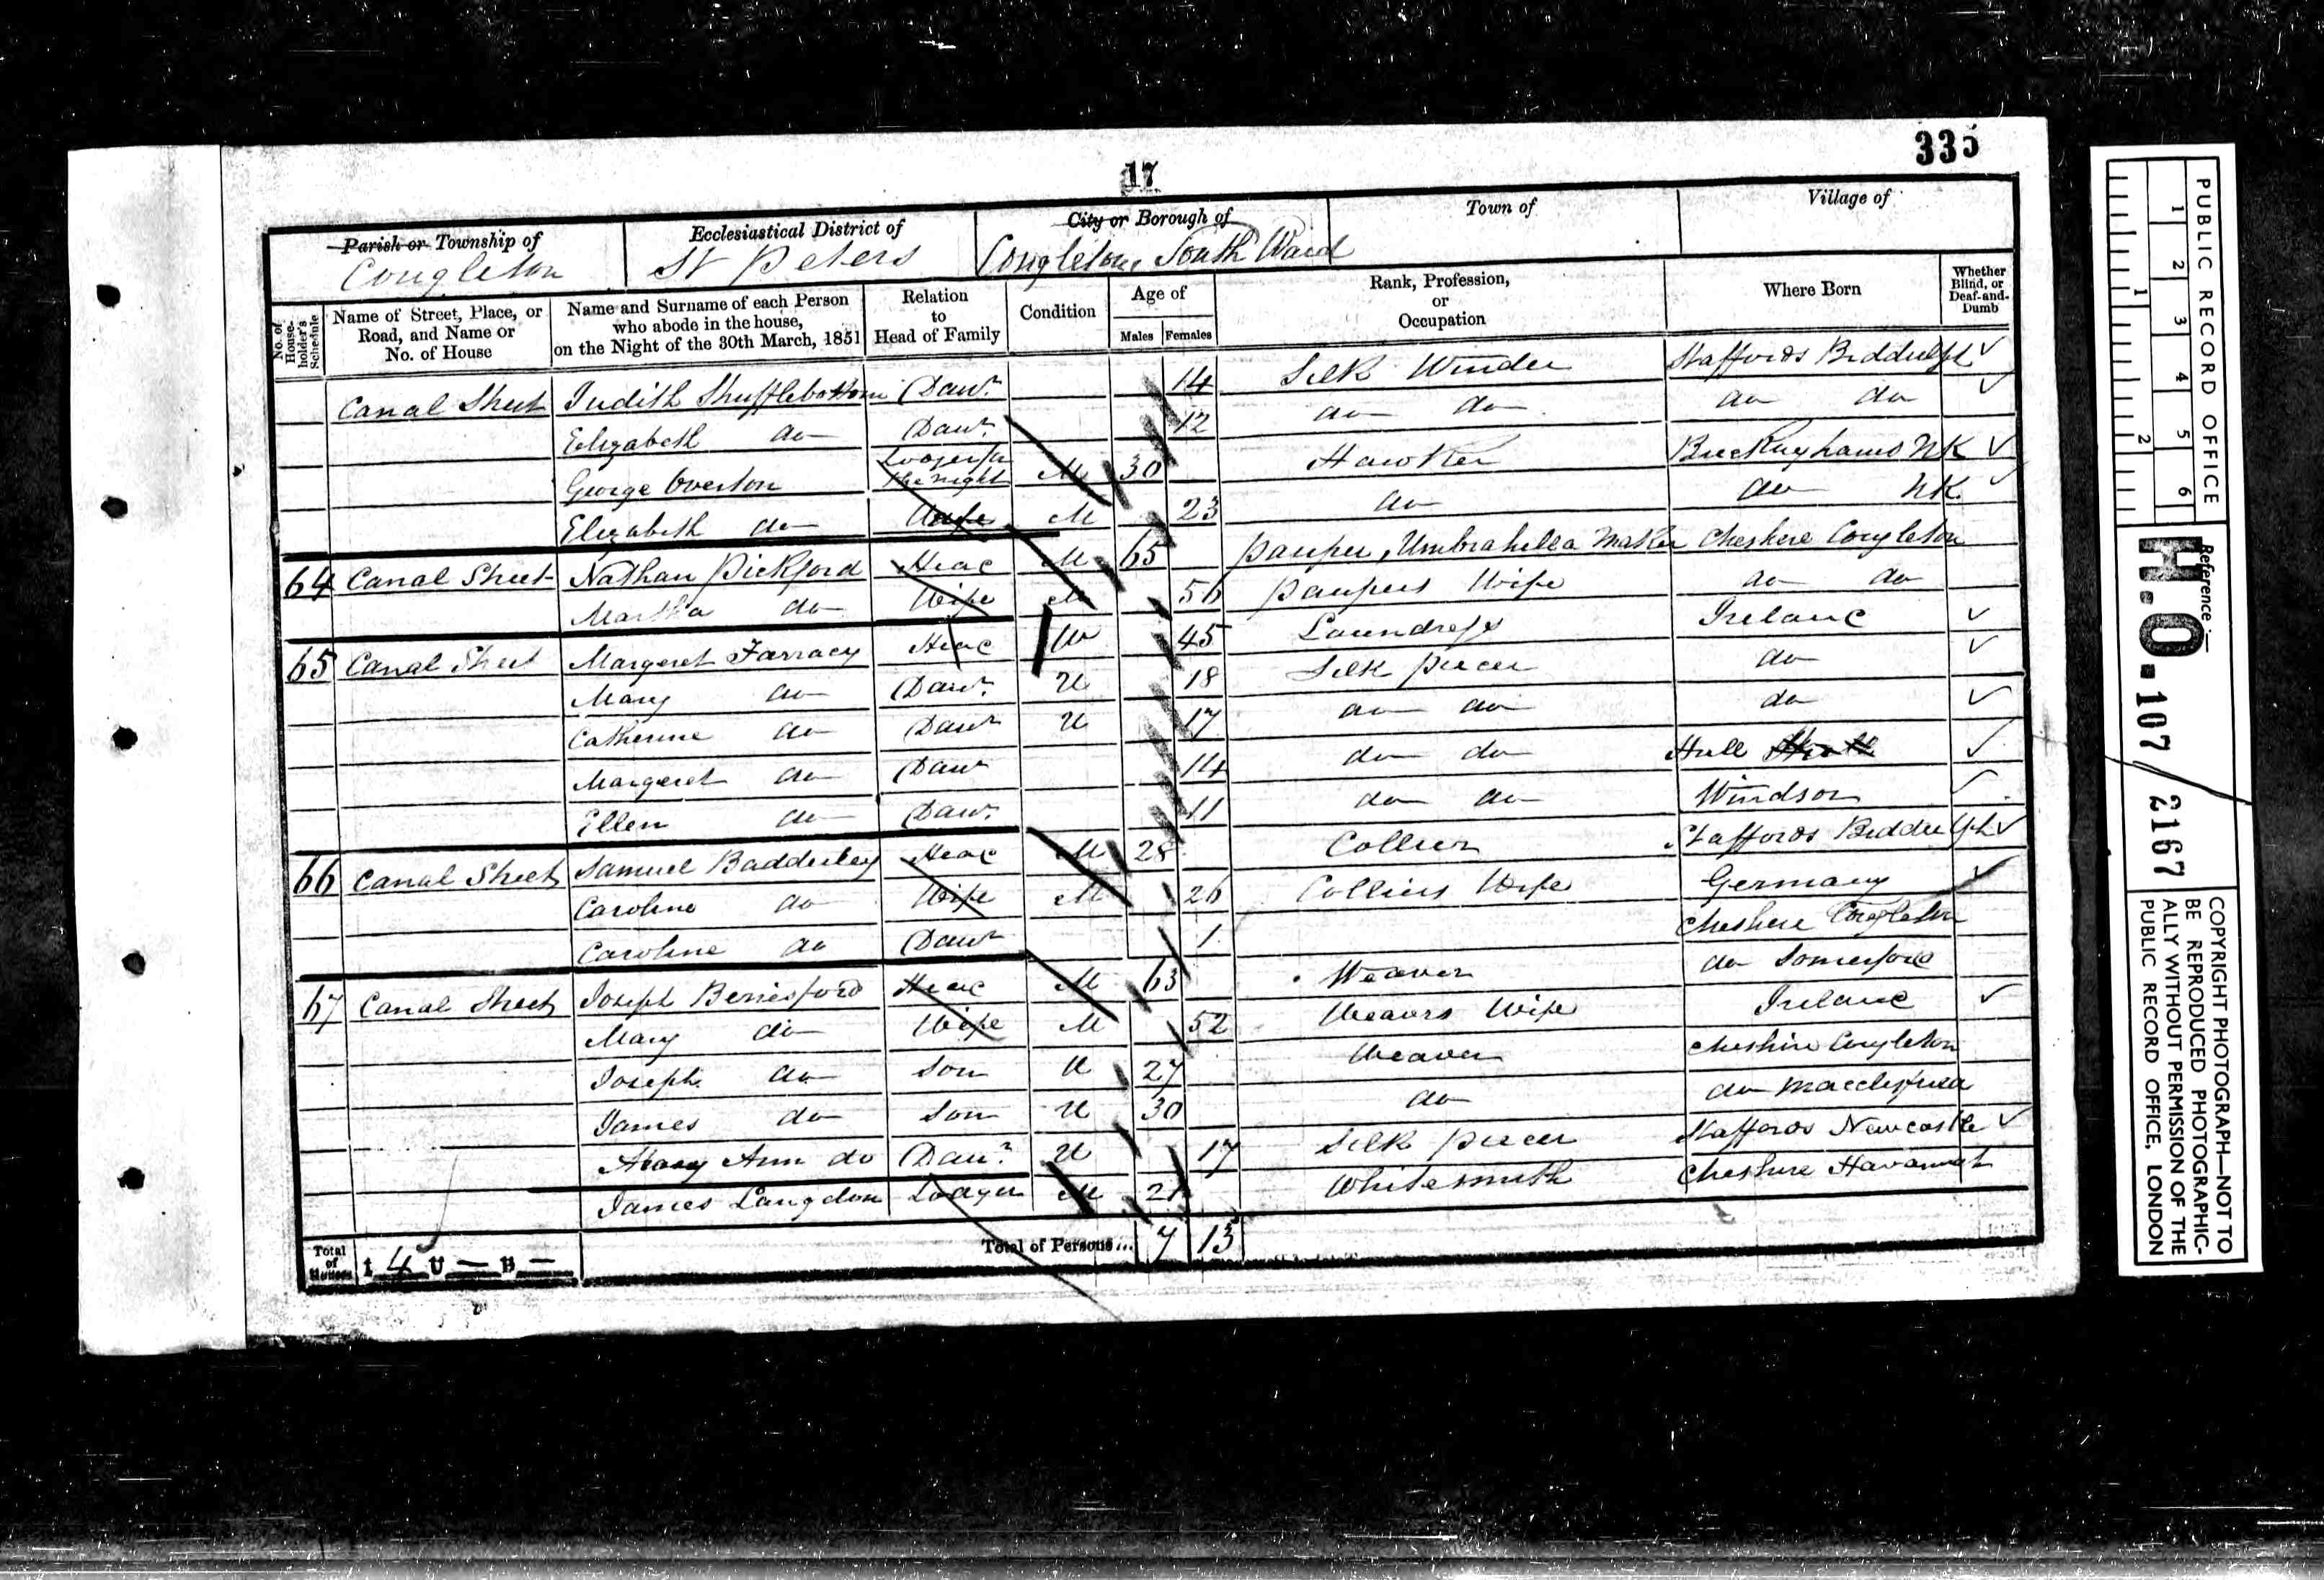 335
17
Parish or Township of
Ecclesiastical District of
City or Borough of
Town of
Village of
Congleton
St Peters
Congleton, South Ward
No. of House-holder's Schedule
Name of Street, Place, or Road, and Name or No. of House
Name and Surname of each Person who abode in the house, on the Night of the 30th March, 1851
Relation to Head of Family
Condition
Age of
Males
Females
Rank, Profession, or Occupation
Where Born
Whether Blind, or Deaf-and-Dumb
Canal Street Judith Shufflebottom Daur. 14 Silk Winder Staffords Biddulph
Elizabeth do Daur. 12 do do do do
George Overton Lodger for the night M 30 Hawker Buckinghams NK
Elizabeth do Wife M 23 do do NK
64 Canal Street Nathan Pickford Head M 65 Pauper, Umbrahella Maker Cheshire Congleton
Martha do Wife M 56 Paupers Wife do do
65 Canal Street Margeret Farracy Head W 45 Laundress Ireland
Mary do Daur. U 18 Silk piecer do
Catherine do Daur U 17 do do do
Margeret do Daur 14 do do Hull
Ellen do Daur. 11 do do Windsor
66 Canal Street Samuel Badderley Head M 28 Collier Staffords Biddulph
Caroline do Wife M 26 Colliers Wife Germany
Caroline do Daur 1 Cheshire Congleton
67 Canal Street Joseph Berresford Head M 63 Weaver do Somerford
Mary do Wife M 52 Weavers Wife Ireland
Joseph do Son U 27 Weaver Cheshire Congleton
James do Son U 30 do do Macclesfield
Mary Ann do Daur. U 17 Silk piecer Staffords Newcastle
James Langdon Lodger M 21 Whitesmith Cheshire Havannah
Total of Houses I 4 U — B —
Total of Persons... 7 13
PUBLIC RECORD OFFICE
1 2 3 4 5 6
1 2
Reference:—
H.O. 107 / 2167
COPYRIGHT PHOTOGRAPH—NOT TO
BE REPRODUCED PHOTOGRAPHIC-
ALLY WITHOUT PERMISSION OF THE
PUBLIC RECORD OFFICE, LONDON